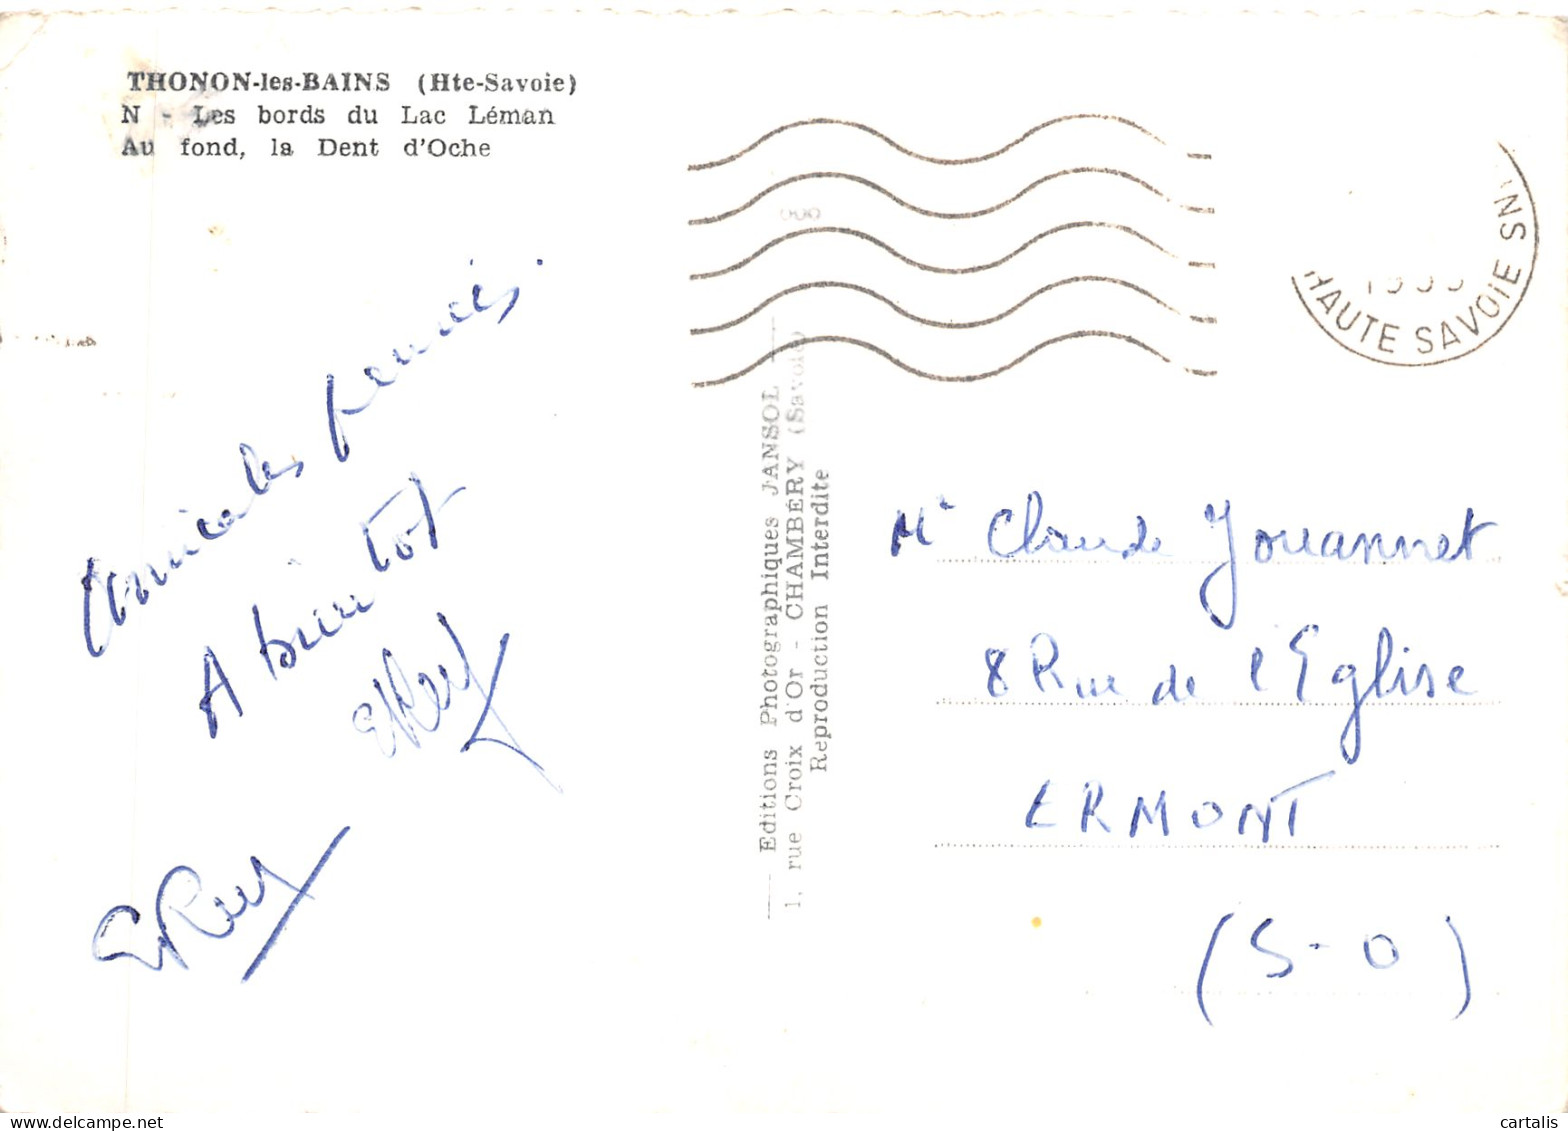 THONON-les-BAINS (Hte-Savoie)
N - Les bords du Lac Léman
Au fond, la Dent d'Oche
Amicales pensées
A bientot
HAUTE SAVOIE
Editions Photographiques JANSOL
1, rue Croix d'Or - CHAMBÉRY (Savoie)
Reproduction Interdite
Mr Claude Jouannet
8 Rue de l'Eglise
ERMONT
(S-O)
cartalis